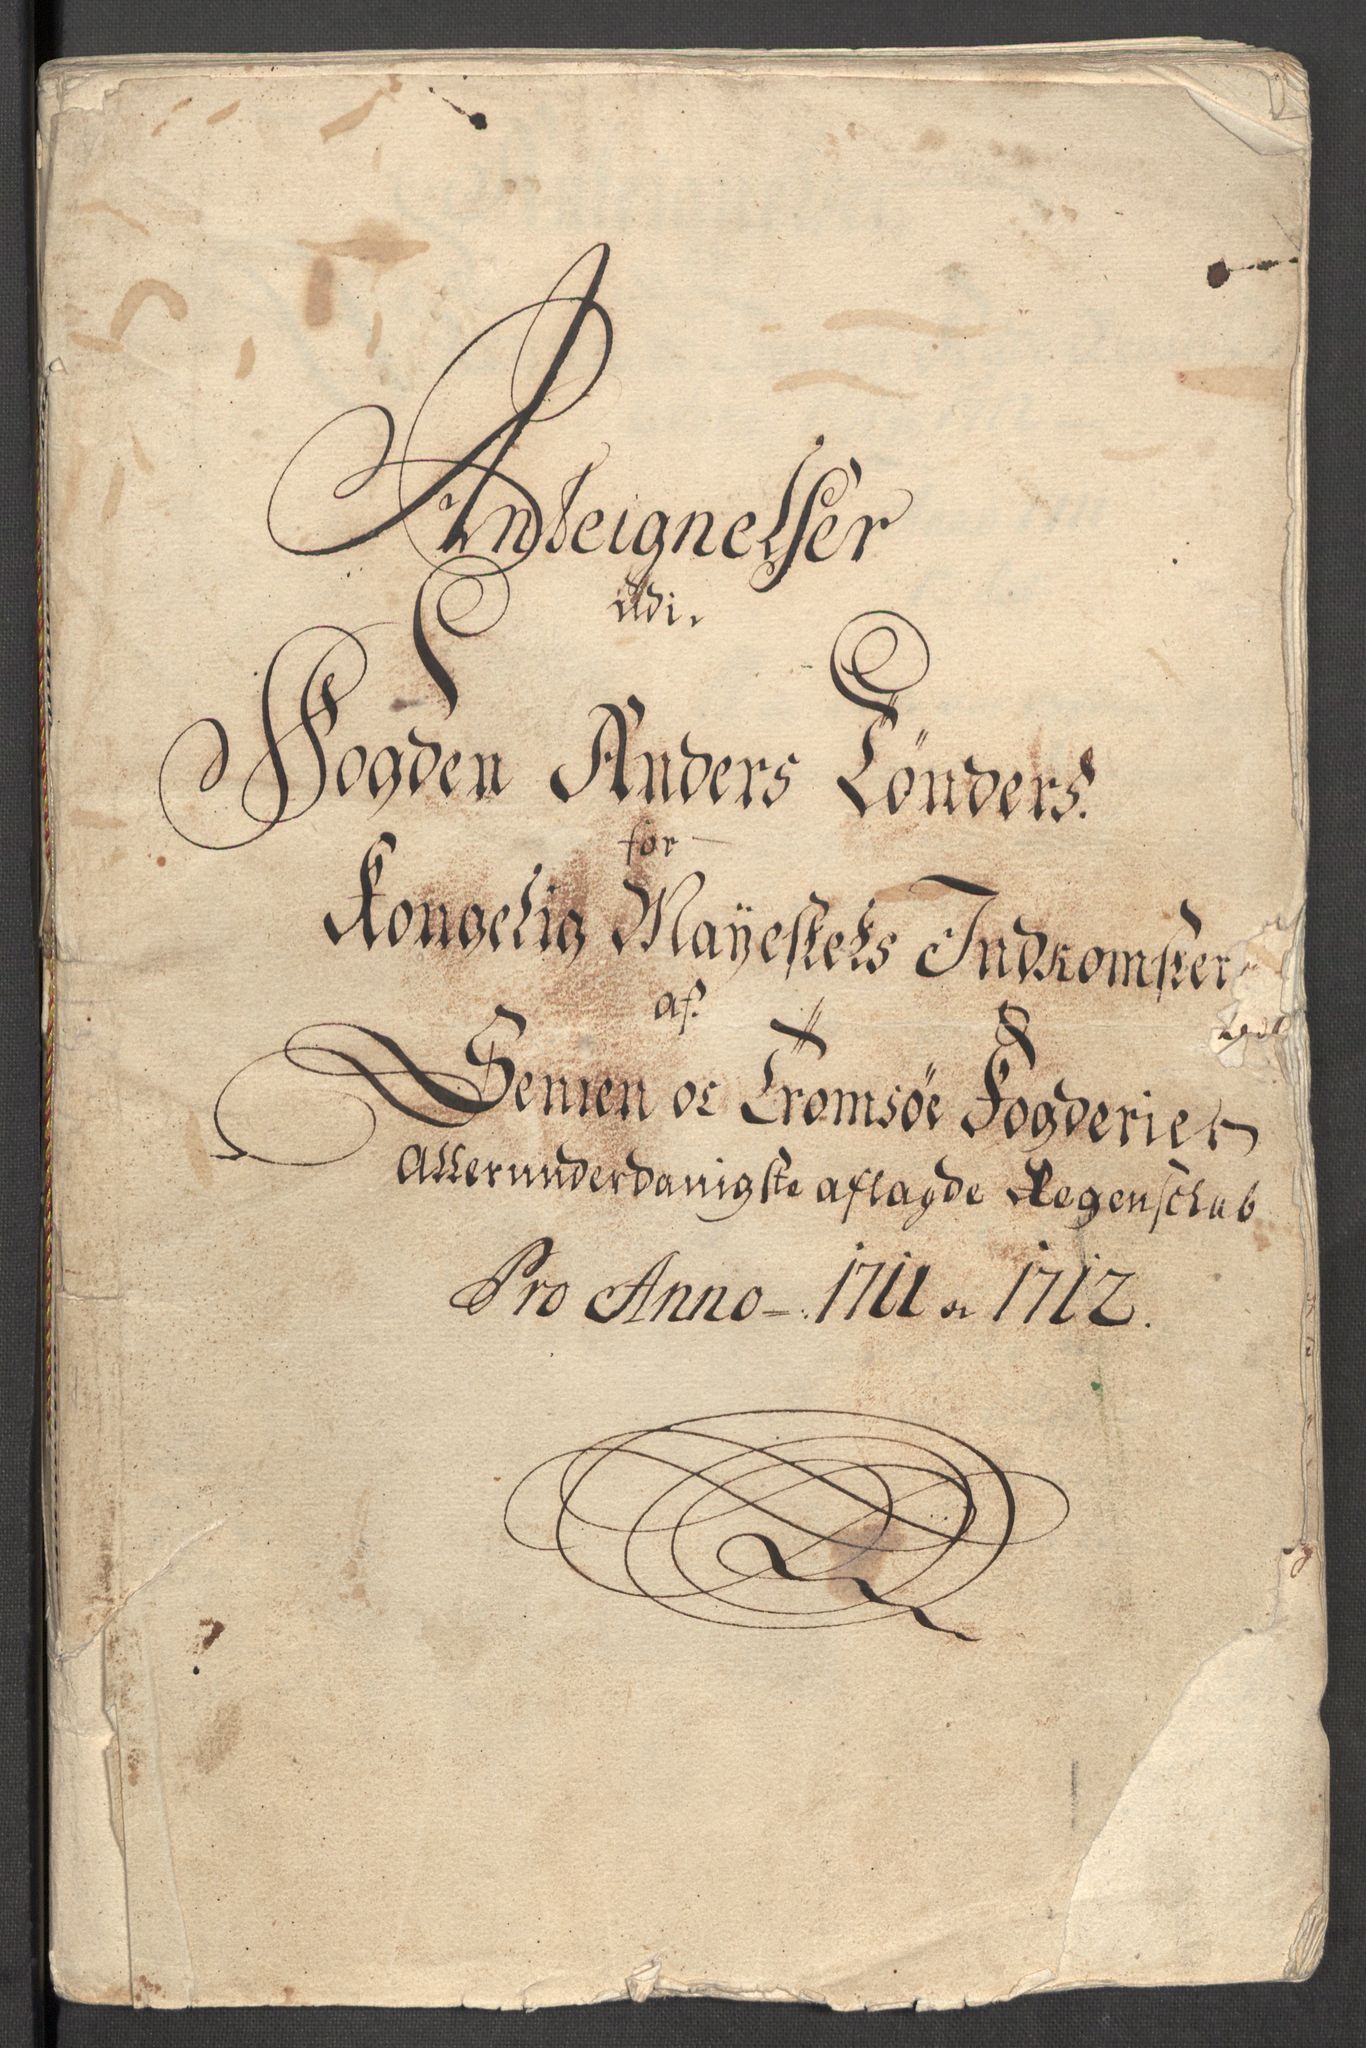 Anteignelser
udi.
Fogden Anders Tönders.
for
Kongelig Mayestets Indkomster
af
Senien oc Tromsöe Fogderier
Allerunderdanigste aflagde Regenschab
Pro Anno - 1711 oc 1712.